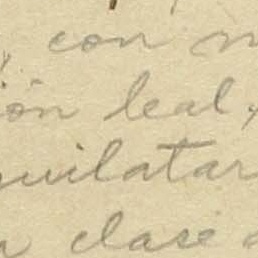 , con
ón leal,
quilatar
clase